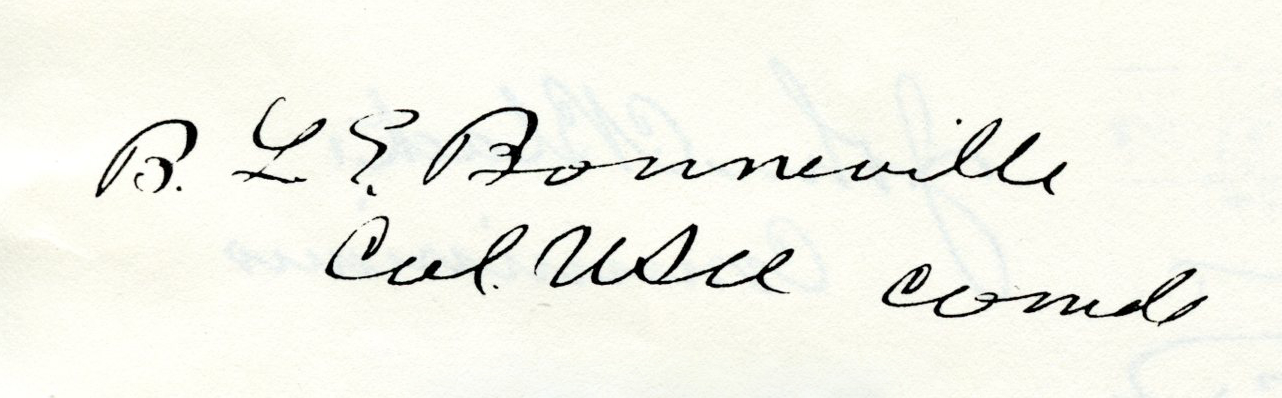 B. L. E. Bonneville
Col. USA comd